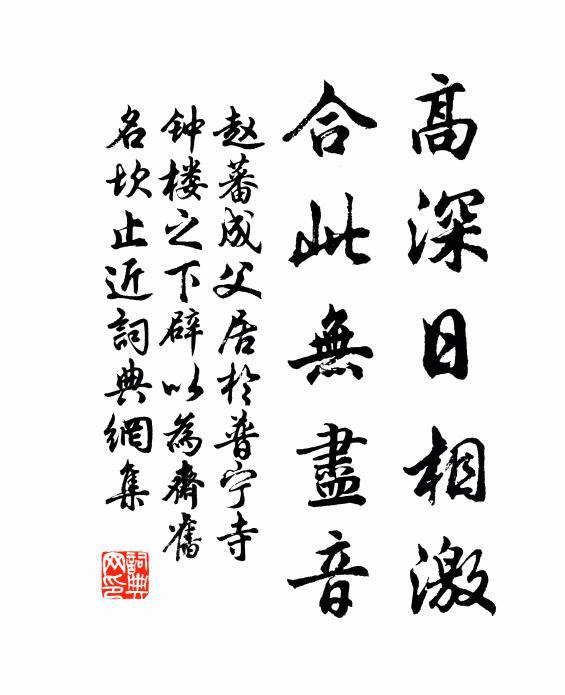 高深日相激
合此無盡音
赵蕃成父居於普宁寺
钟楼之下辟以為齋舊
名坎止近詞典網集
詞典網印